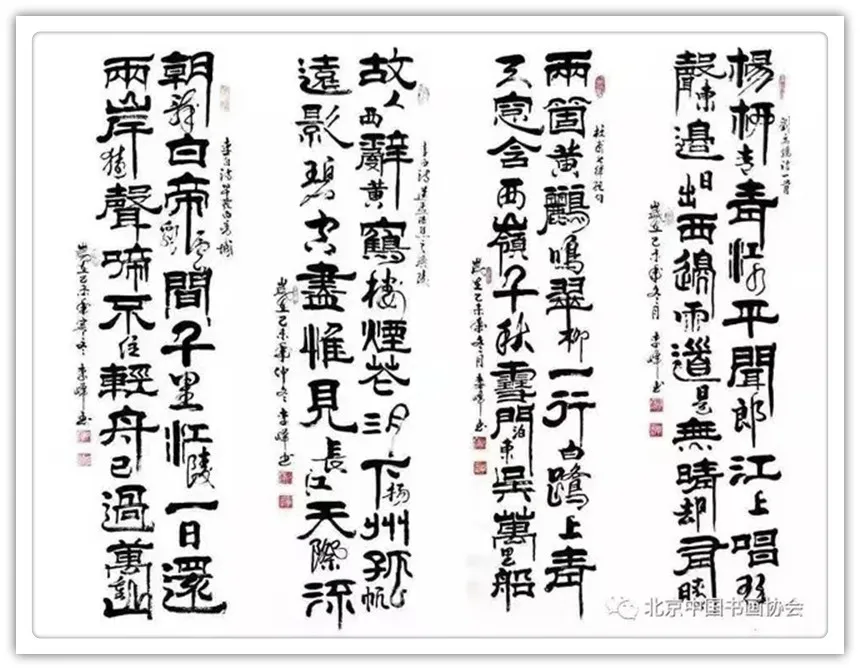 劉禹錫詩一首
楊柳青青江水平聞郎江上唱歌
聲東邊日出西邊雨道是無晴却有晴
歲在乙未年冬月 李
杜甫
兩箇黃鸝鳴翠柳一行白鷺上青
天窓含西嶺千秋雪門泊東吳萬里船
歲在乙未年冬月 李
李白詩送孟浩然之廣陵
故人西辭黃鶴樓煙花三月下揚州孤帆
遠影碧空盡惟見長江天際流
歲在乙未年仲冬 李
李白詩早發白帝城
朝辭白帝彩雲間千里江陵一日還
兩岸猿聲啼不住輕舟已過萬重山
歲在乙未年 冬 李
北京中国书画协会